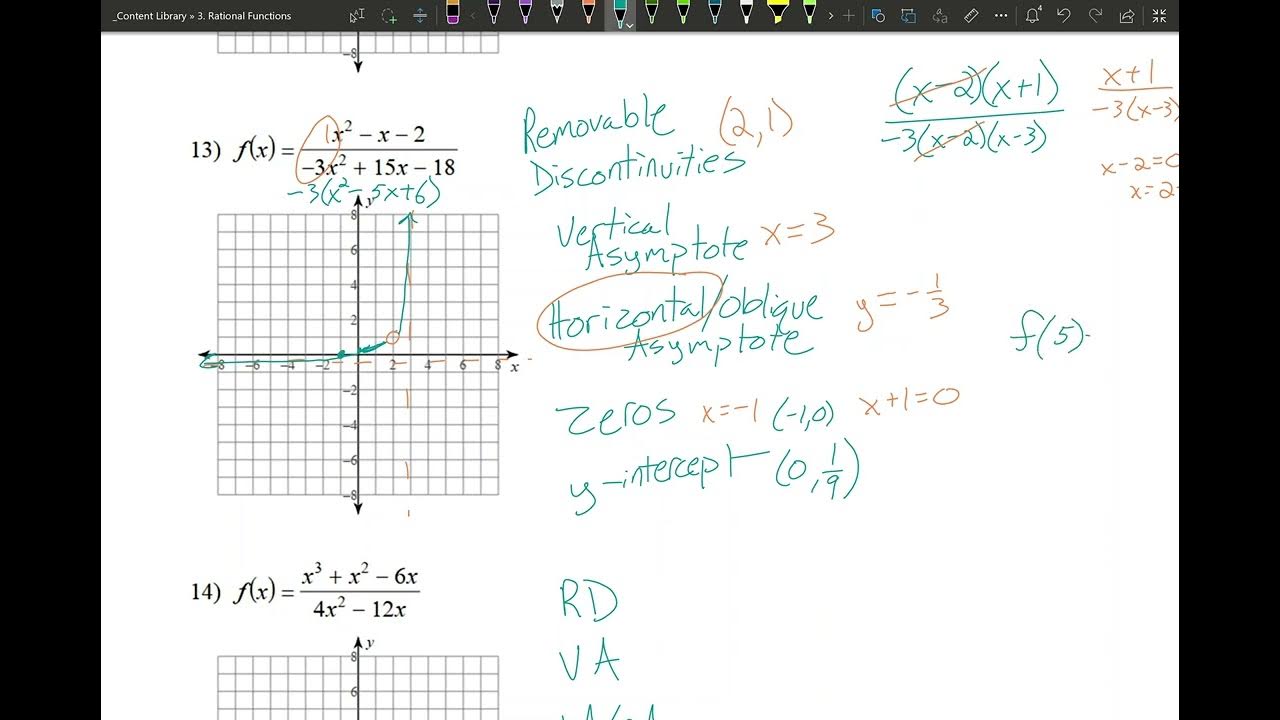 _Content Library » 3. Rational Functions
-8
13) f(x) = 1x² − x − 2 / −3x² + 15x − 18
−3(x² − 5x + 6)
Removable
Discontinuities
(2,1)
(x−2)(x+1)
−3(x−2)(x−3)
x+1
−3(x−3)
x−2=0
x=2
y
8
6
4
2
-8 -6 -4 -2 2 4 6 8 x
-2
-4
-6
-8
Vertical
Asymptote x=3
Horizontal/Oblique
Asymptote
y = −1/3
f(5)
Zeros x=−1 (-1,0) x+1=0
y-intercept (0, 1/9)
14) f(x) = x³ + x² − 6x / 4x² − 12x
RD
VA
y
8
6